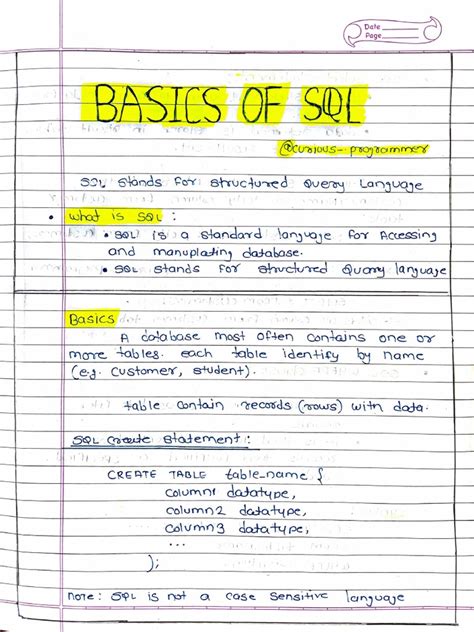 Date
Page
BASICS OF SQL
@curious-programmer
SQL stands for structured Query Language
• what is SQL :
• SQL is a standard language for Accessing
and manuplating database.
• SQL stands for structured Query language
Basics
A database most often contains one or
more tables. each table identify by name
(e.g. customer, student).
table contain records (rows) with data.
SQL Create statement :
CREATE TABLE table_name {
column1 datatype,
column2 datatype,
column3 datatype,
...
);
note : SQL is not a case sensitive language